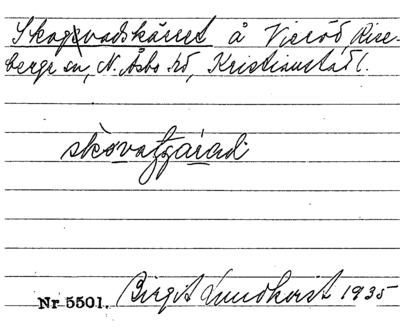 Skogsvadskärret å Vieröd, Rise-
berga sn, N. Åsbo hd, Kristianstads l.
skovatzärad
Nr 5501. Birgit Lundkvist 1935